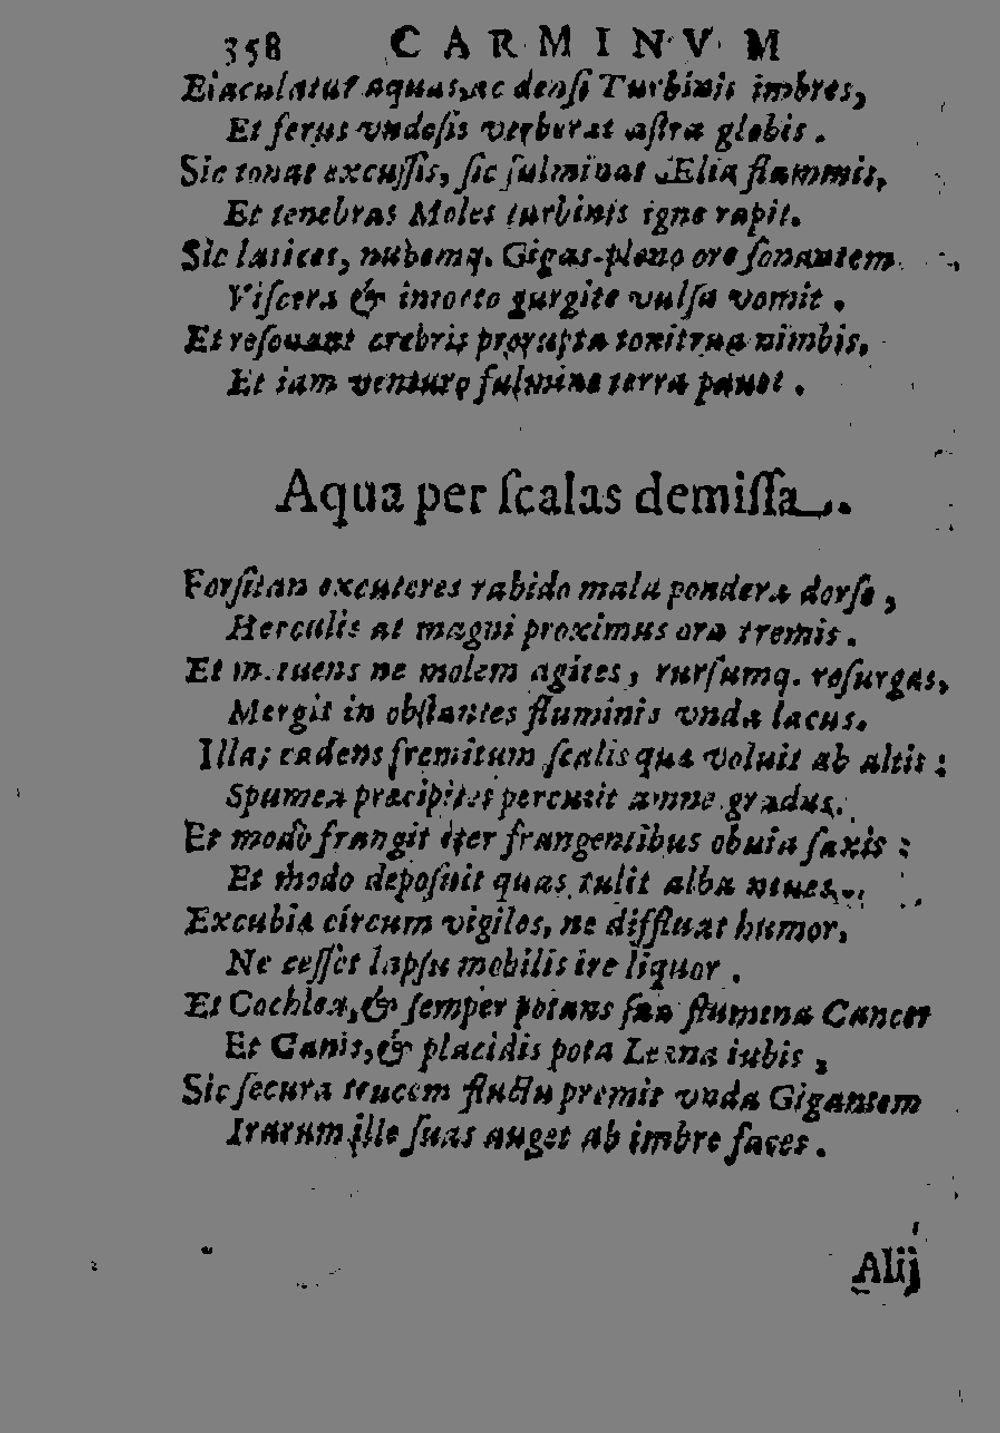 358 CARMINVM
Eiaculatur aquas, ac densi Turbinis imbres,
Et ferus vndosis verberat astra globis.
Sic tonat excussis, sic fulminat Ælia flammis,
Et tenebras Moles turbinis igne rapit.
Sic latices, nubemq. Gigas pleno ore sonantem
Viscera & intorto gurgite vulsa vomit.
Et resonant crebris prorupta tonitrua nimbis,
Et iam venturo fulmine terra pauet.
Aqua per scalas demissa.
Forsitan excuteres rabido mala pondera dorso,
Herculis at magni proximus ora tremis.
Et metuens ne molem agites, rursumq. resurgas,
Mergit in obstantes fluminis vnda lacus.
Illa; cadens fremitum scalis qua voluit ab altis:
Spumea præcipites percutit amne gradus.
Et modò frangit iter frangentibus obuia saxis:
Et modo deposuit quas tulit alba niues.
Excubiæ circum vigiles, ne diffluat humor,
Ne cesset lapsu mobilis ire liquor.
Et Cochlea, & semper potans sua flumina Cancer
Et Canis, & placidis pota Leæna iubis,
Sic secura trucem fluctu premit vnda Gigantem
Irarum ille suas auget ab imbre faces.
Alij